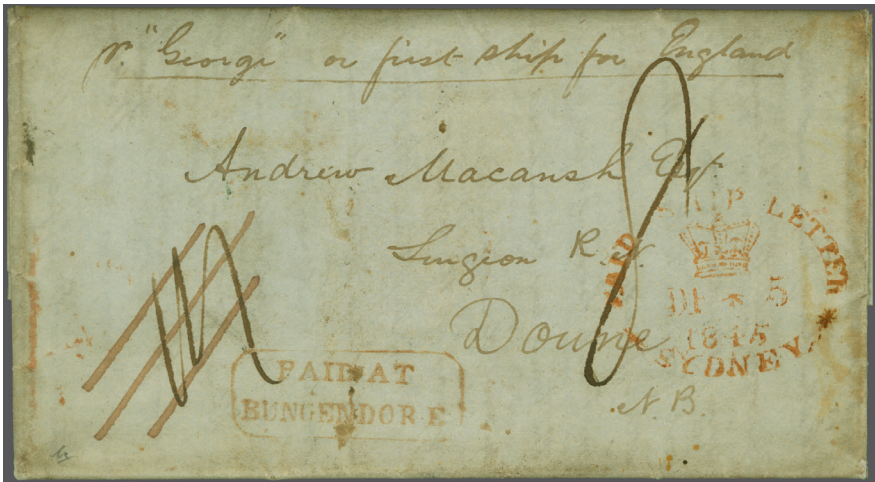 pr. "George" or first ship for England
Andrew Macansh Esqr
Surgeon R. N.
Doune
N. B.
8
PAID SHIP LETTER
DE * 5
1845
SYDNEY
PAID AT
BUNGENDORE